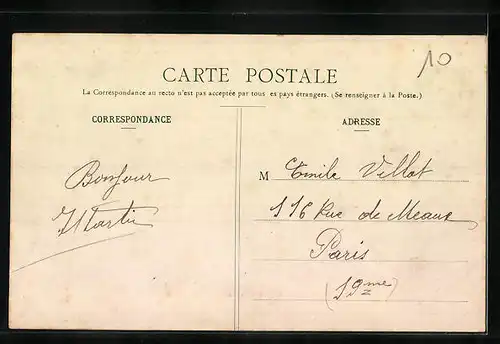 10
CARTE POSTALE
La Correspondance au recto n'est pas acceptée par tous es pays étrangers. (Se renseigner à la Poste.)
CORRESPONDANCE
Bonjour
Martin
ADRESSE
M Emile Villat
116 Rue de Meaux
Paris
(19me)